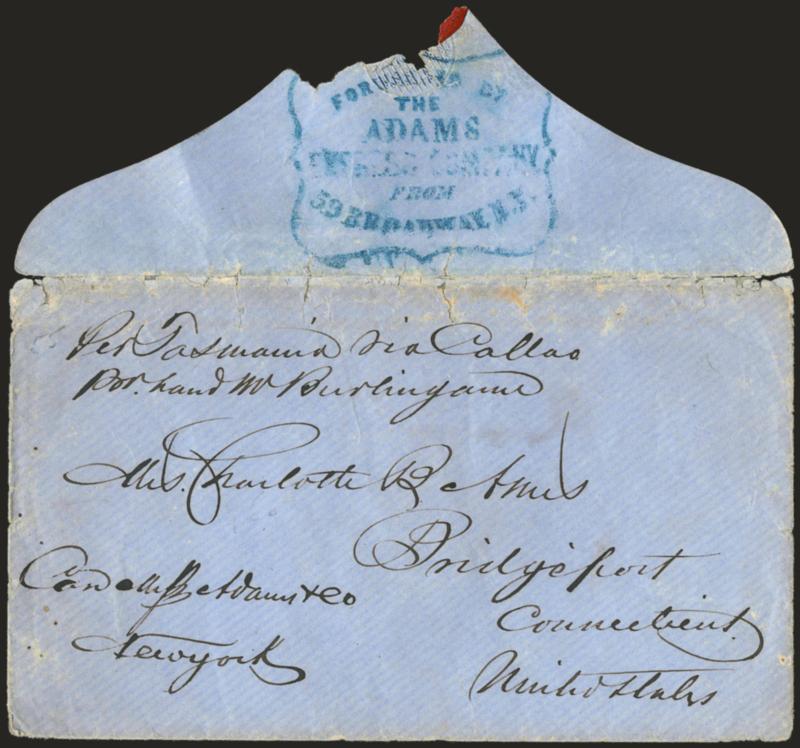 FOR BY
THE
ADAMS
EXPRESS COMPANY
FROM
59 BROADWAY, N.Y.
Per Tasmania via Callao
Por. hand Mr Burlingame
Mrs. Charlotte R Ames
Bridgeport
Connecticut.
United States
Care Adams & Co
New york